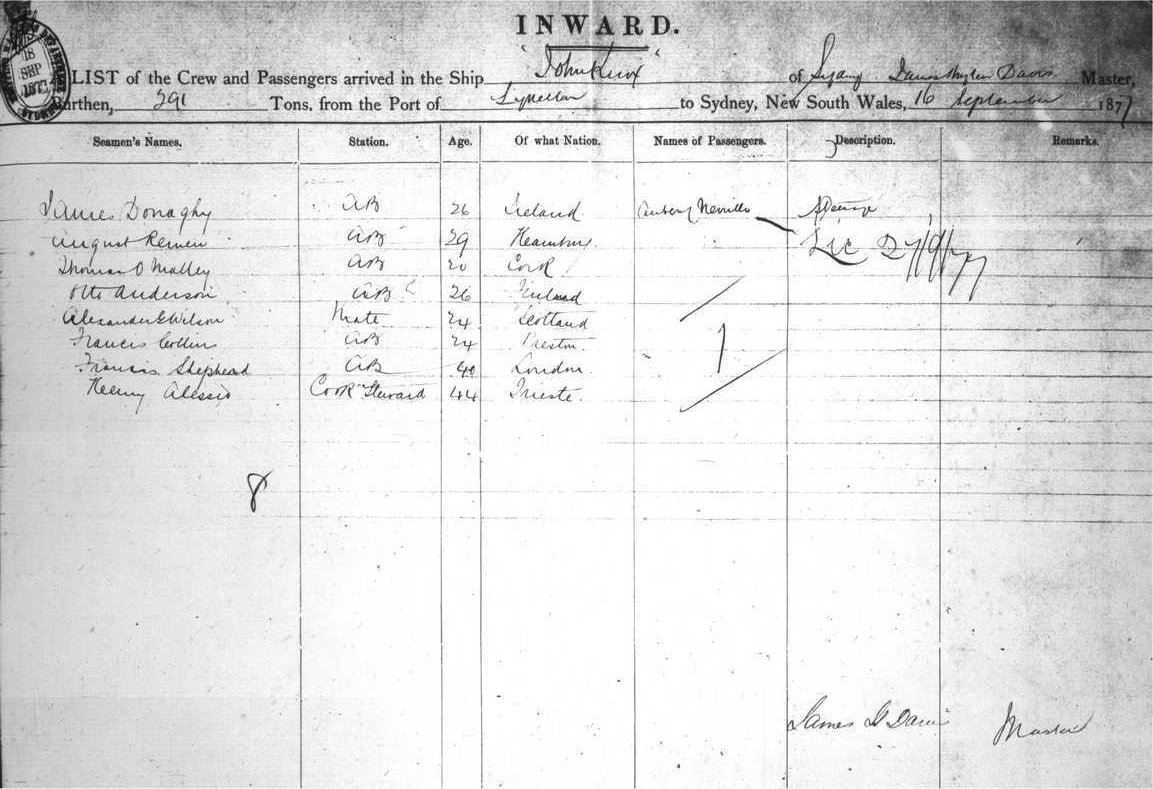 INWARD.
18
SEP
187
A LIST of the Crew and Passengers arrived in the Ship "John Knox" of Sydney James Davis Master,
Burthen, 291 Tons, from the Port of Lyttelton to Sydney, New South Wales, 16 September 1877
Seamen's Names. Station. Age. Of what Nation. Names of Passengers. Description. Remarks.
James Donaghy AB 26 Ireland Neville Steerage
August AB 29 Hamburg Lic 27/9/77
Thomas O Malley AB 20 Cork
Otto Anderson AB 26 Finland
Alexander G Wilson Mate 24 Scotland
Francis Collins AB 24 Preston 1
Francis Shephead AB 40 London
Henry Alessio Cook Steward 44 Trieste
8
James H Davis Master